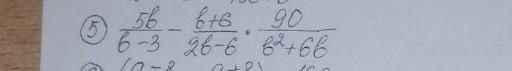 ⑤ 5b/(b-3) - (b+6)/(2b-6) · 90/(b²+6b)